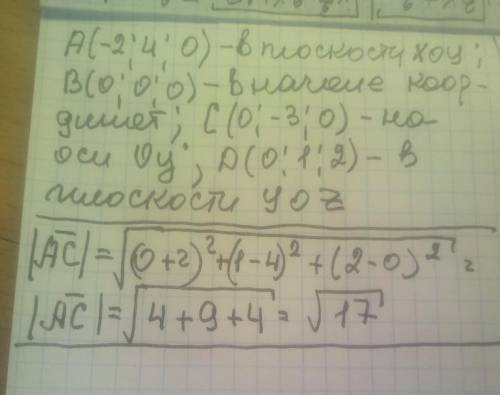 A(-2; 4; 0) - в плоскости xoy;
B(0; 0; 0) - в начале коор-
динат; C(0; -3; 0) - на
оси Oy; D(0; 1; 2) - в
плоскости yoz
|AC| = √((0+2)²+(1-4)²+(2-0)²) =
|AC| = √(4+9+4) = √17